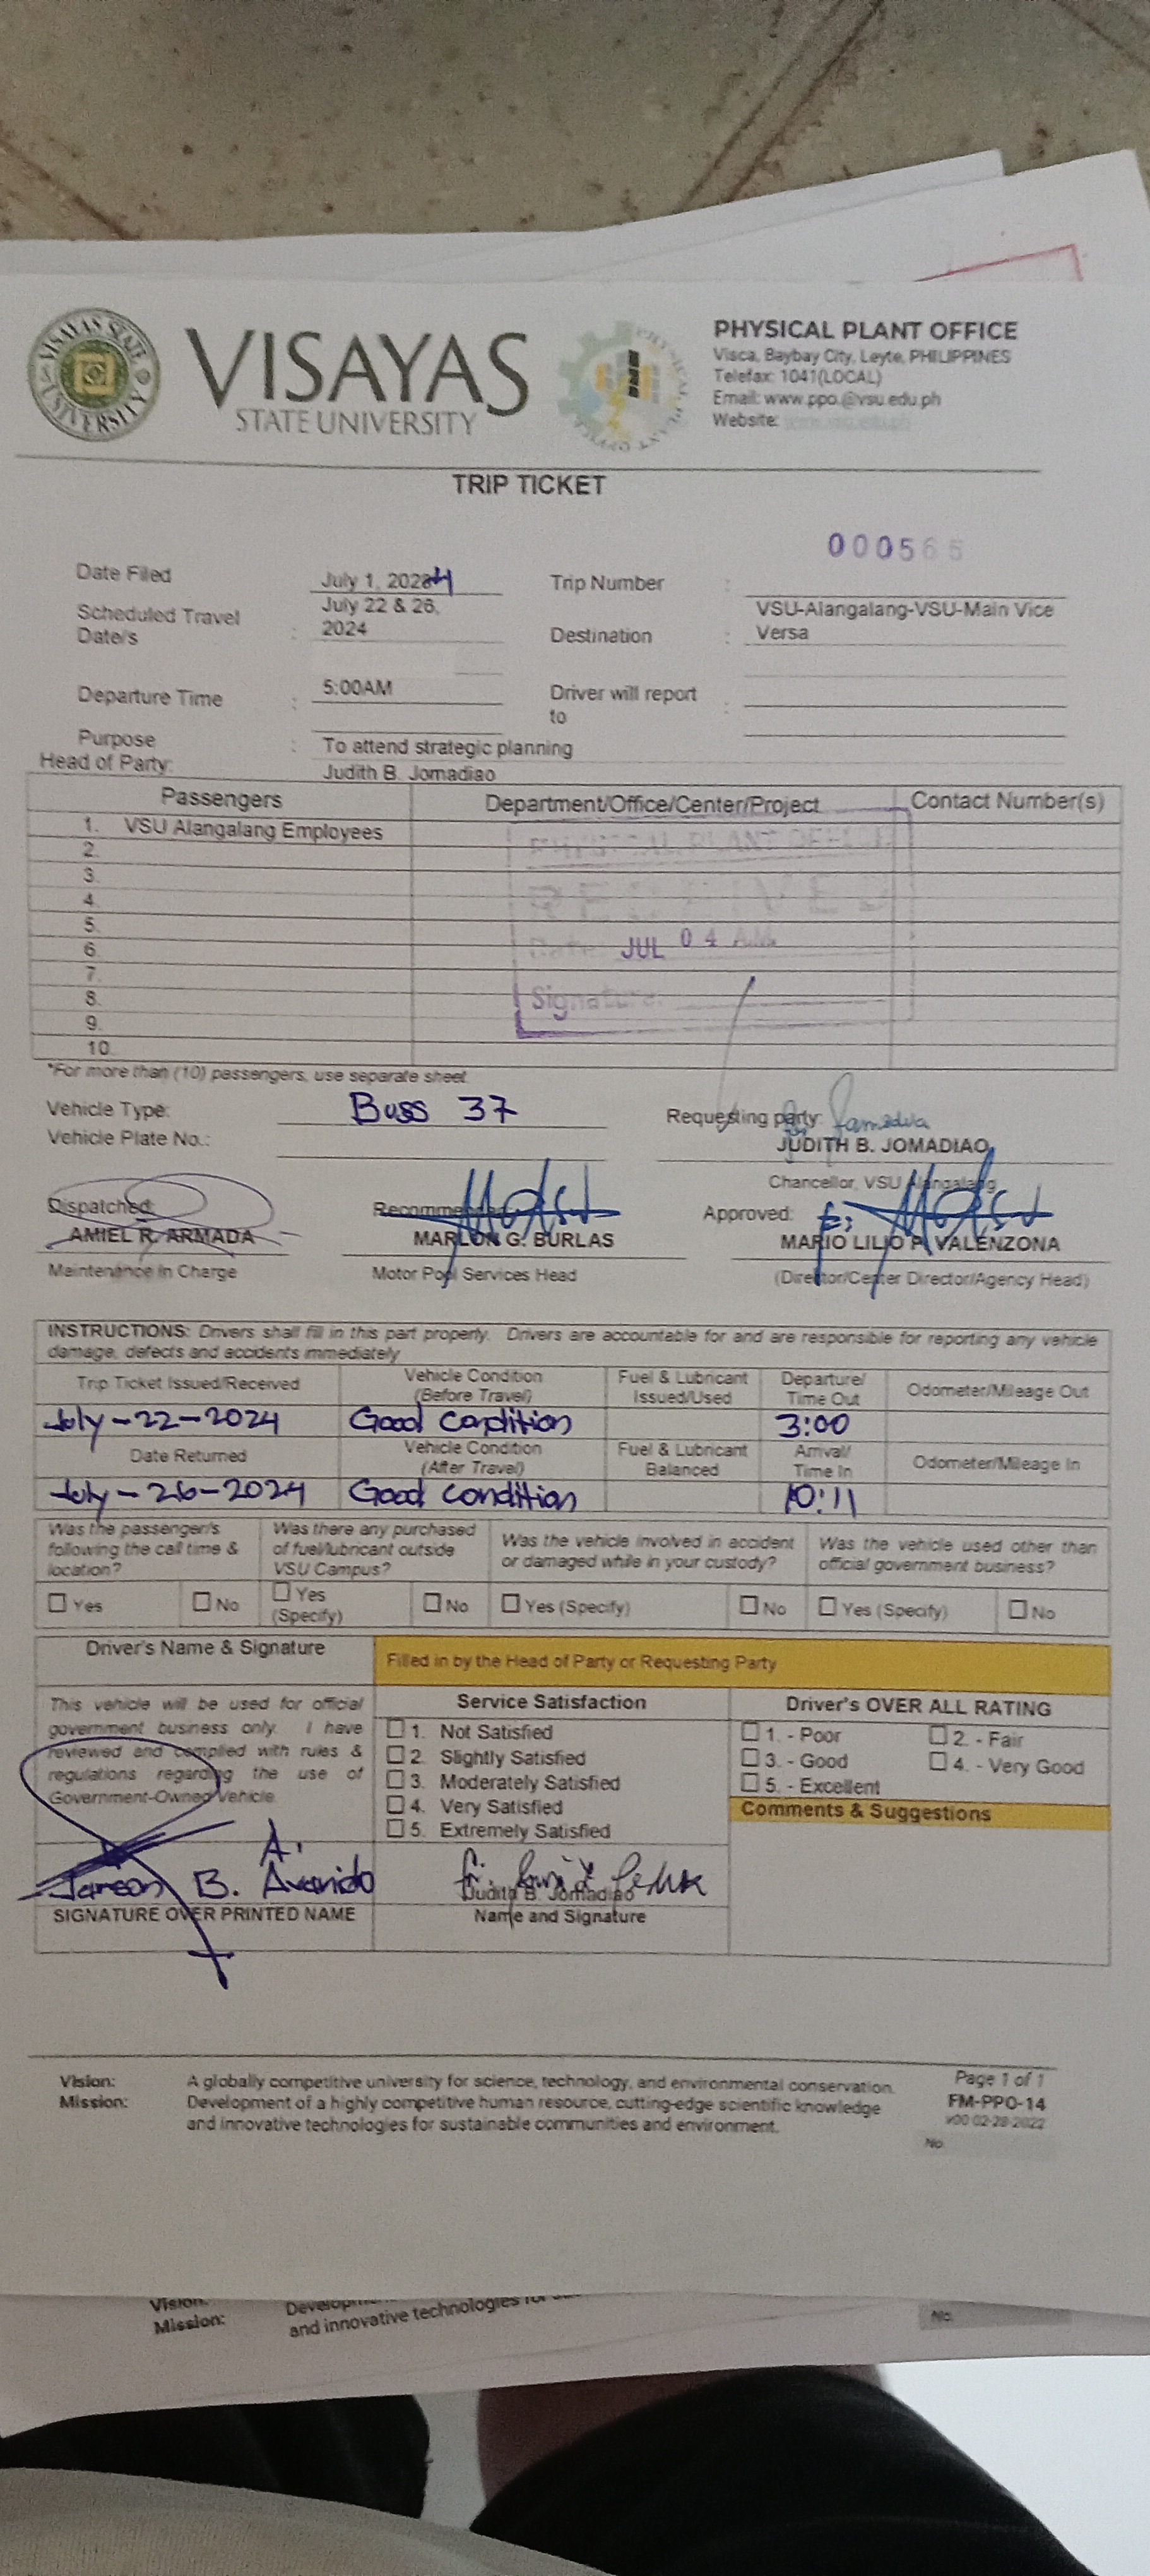 VISAYAS STATE UNIVERSITY
VISAYAS
STATE UNIVERSITY
PHYSICAL PLANT OFFICE
Visca, Baybay City, Leyte, PHILIPPINES
Telefax: 1041(LOCAL)
Email: www.ppo.@vsu.edu.ph
Website:
TRIP TICKET
000565
Date Filed July 1, 2024 Trip Number :
Scheduled Travel Date/s : July 22 & 26, 2024 Destination : VSU-Alangalang-VSU-Main Vice Versa
Departure Time : 5:00AM Driver will report to :
Purpose : To attend strategic planning
Head of Party: Judith B. Jomadiao
Passengers Department/Office/Center/Project Contact Number(s)
1. VSU Alangalang Employees
2.
3.
4.
5.
6.
7.
8.
9.
10.
PHYSICAL PLANT OFFICE
RECEIVED
Date JUL 04
Signature
*For more than (10) passengers, use separate sheet.
Vehicle Type: Buss 37 Requesting party:
Vehicle Plate No.: JUDITH B. JOMADIAO
Chancellor, VSU Alangalang
Dispatched: Recommended Approved:
AMIEL R. ARMADA MARLON G. BURLAS MARIO LILIO P. VALENZONA
Maintenance In Charge Motor Pool Services Head (Director/Center Director/Agency Head)
INSTRUCTIONS: Drivers shall fill in this part properly. Drivers are accountable for and are responsible for reporting any vehicle
damage, defects and accidents immediately
Trip Ticket Issued/Received Vehicle Condition (Before Travel) Fuel & Lubricant Issued/Used Departure/ Time Out Odometer/Mileage Out
July-22-2024 Good condition 3:00
Date Returned Vehicle Condition (After Travel) Fuel & Lubricant Balanced Arrival/ Time In Odometer/Mileage In
July-26-2024 Good condition 10:11
Was the passenger/s following the call time & location? Was there any purchased of fuel/lubricant outside VSU Campus? Was the vehicle involved in accident or damaged while in your custody? Was the vehicle used other than official government business?
Yes No Yes (Specify) No Yes (Specify) No Yes (Specify) No
Driver's Name & Signature Filled in by the Head of Party or Requesting Party
This vehicle will be used for official
government business only. I have
reviewed and complied with rules &
regulations regarding the use of
Government-Owned Vehicle.
Service Satisfaction
1. Not Satisfied
2. Slightly Satisfied
3. Moderately Satisfied
4. Very Satisfied
5. Extremely Satisfied
Driver's OVER ALL RATING
1. - Poor 2. - Fair
3. - Good 4. - Very Good
5. - Excellent
Comments & Suggestions
B.
Judith B. Jomadiao
SIGNATURE OVER PRINTED NAME Name and Signature
Vision: A globally competitive university for science, technology, and environmental conservation.
Mission: Development of a highly competitive human resource, cutting-edge scientific knowledge
and innovative technologies for sustainable communities and environment.
Page 1 of 1
FM-PPO-14
v00 02-28-2022
No
Vision:
Mission:
and innovative technologies for
No.